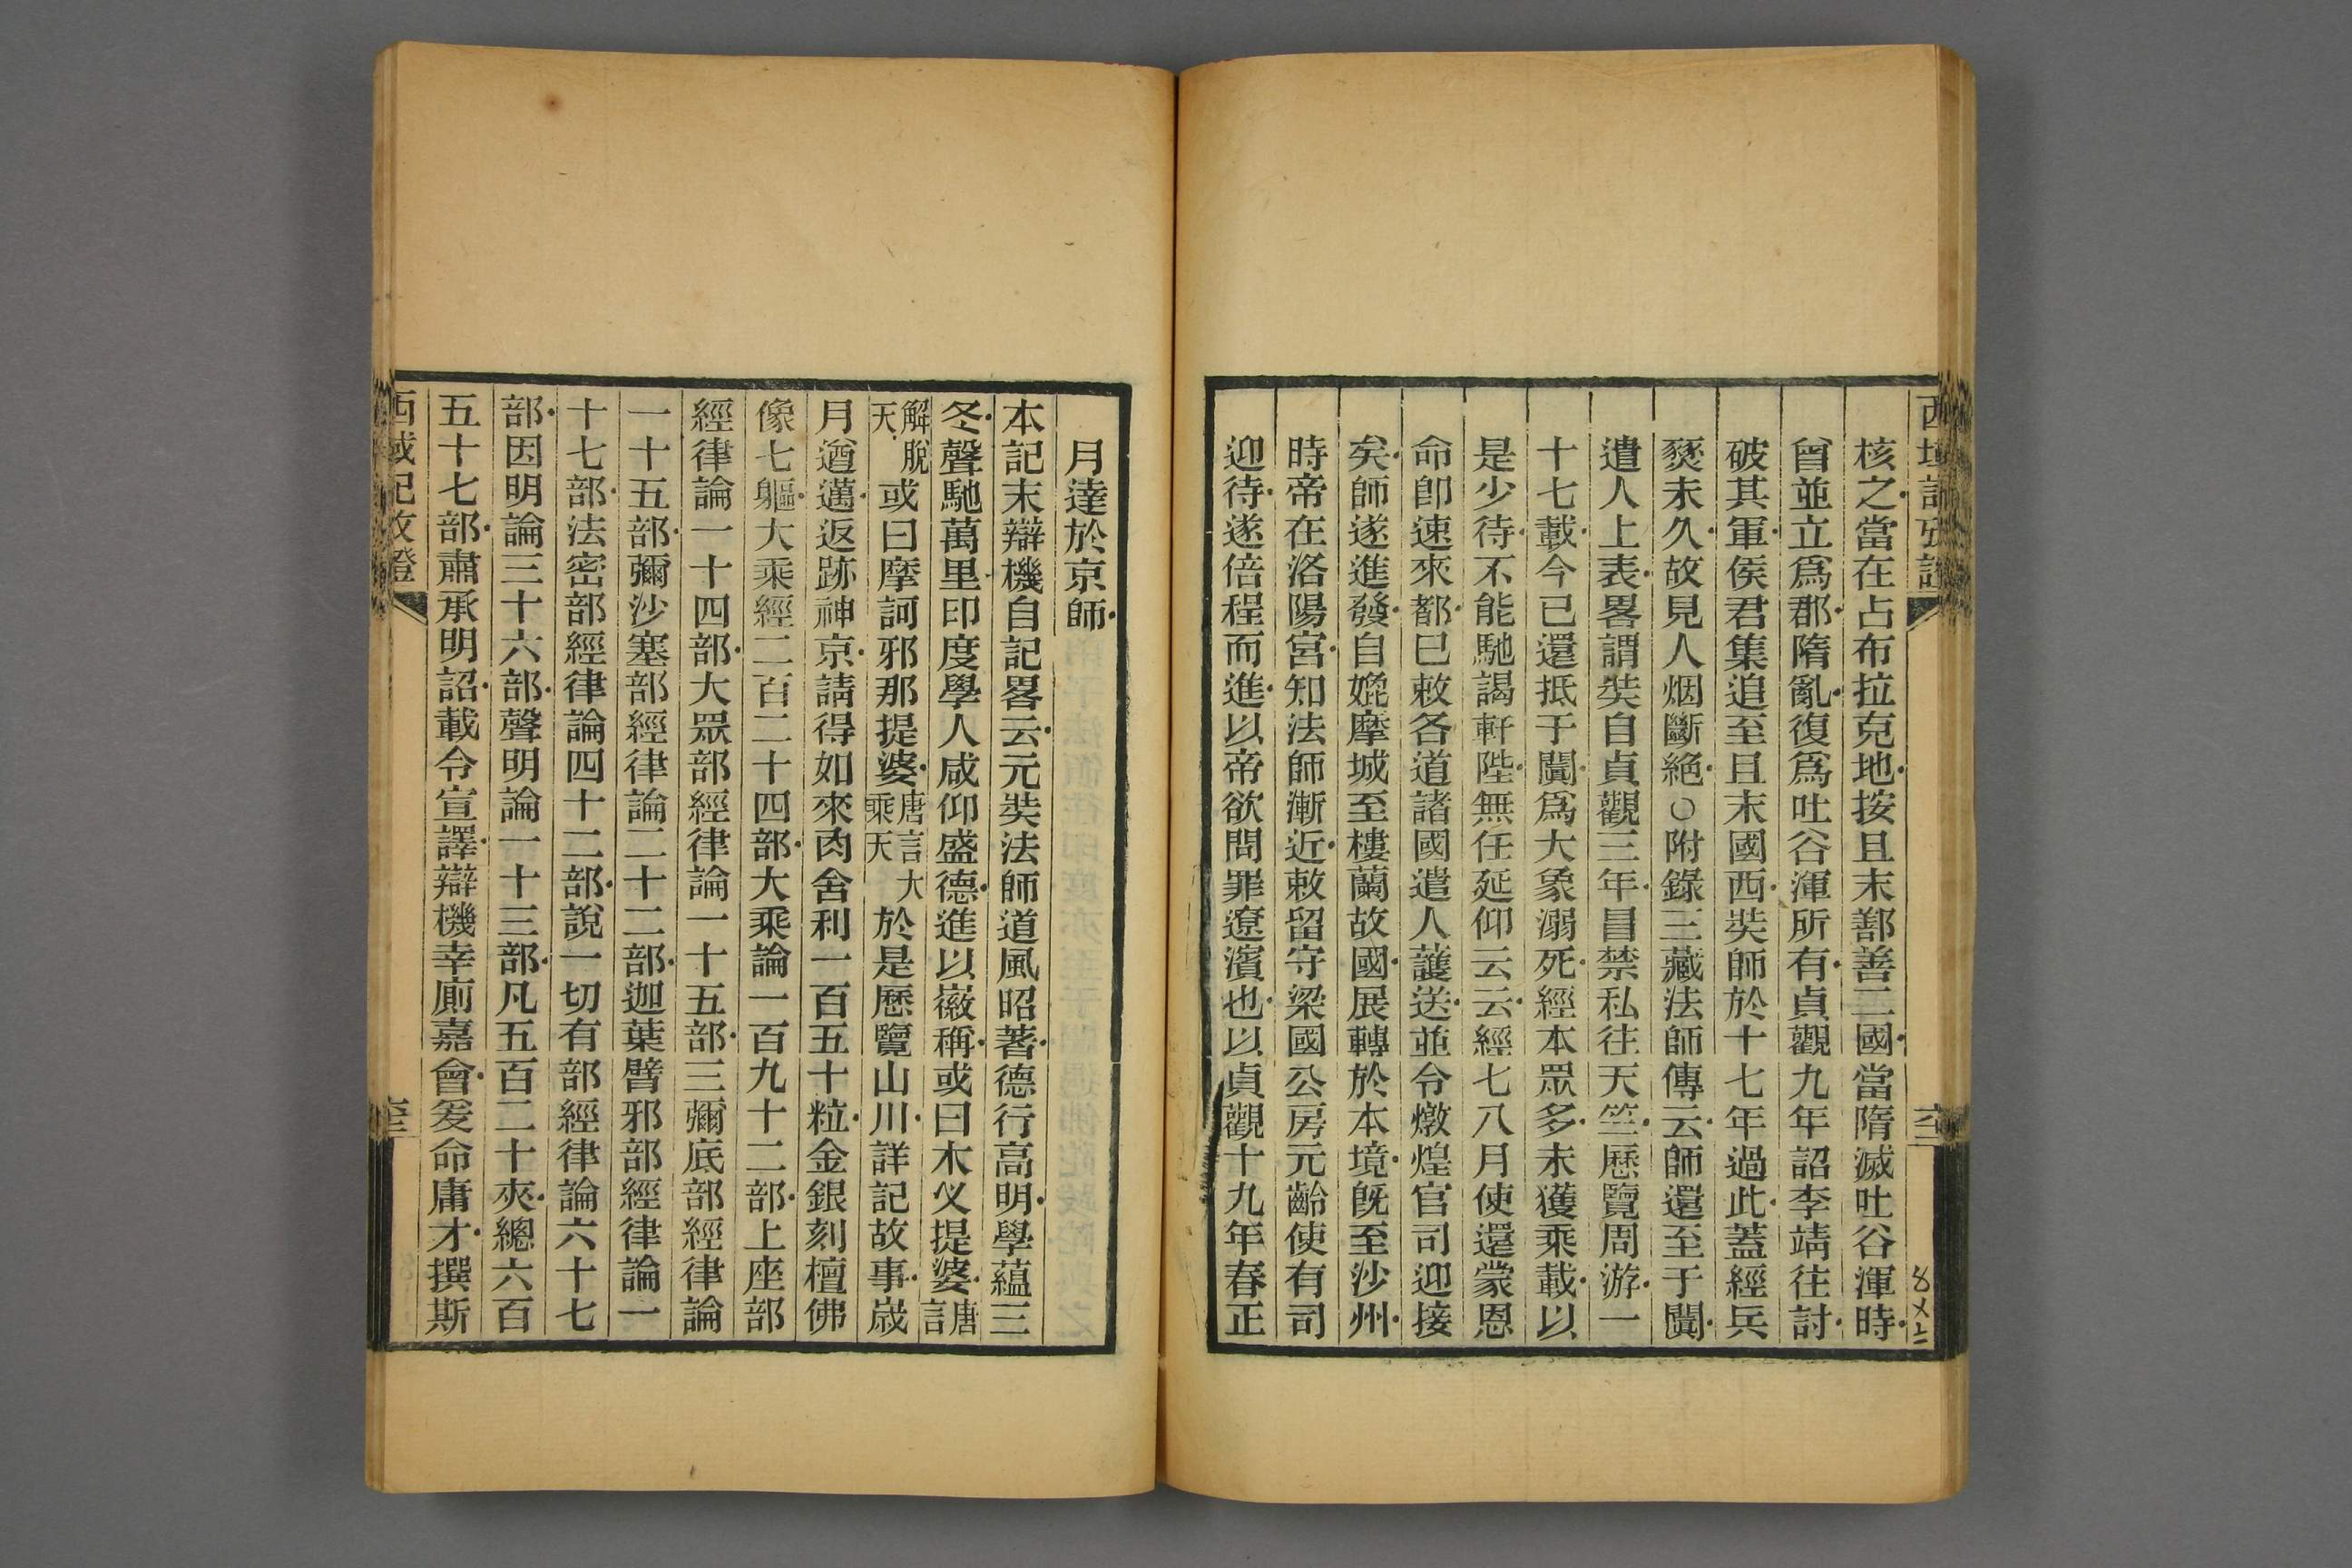 西域記攷證
核之當在占布拉克地按且末鄯善二國當隋滅吐谷渾時
曾並立爲郡隋亂復爲吐谷渾所有貞觀九年詔李靖往討
破其軍侯君集追至且末國西奘師於十七年過此蓋經兵
燹未久故見人烟斷絶○附錄三藏法師傳云師還至于闐
遣人上表畧謂奘自貞觀三年冒禁私往天竺歷覽周游一
十七載今已還抵于闐爲大象溺死經本眾多未獲乘載以
是少待不能馳謁軒陛無任延仰云云經七八月使還蒙恩
命卽速來都已敕各道諸國遣人護送並令燉煌官司迎接
矣師遂進發自媲摩城至樓蘭故國展轉於本境旣至沙州
時帝在洛陽宮知法師漸近敕留守梁國公房元齡使有司
迎待遂倍程而進以帝欲問罪遼濱也以貞觀十九年春正
月達於京師
本記末辯機自記畧云元奘法師道風昭著德行高明學蘊三
冬聲馳萬里印度學人咸仰盛德進以徽稱或曰木义提婆唐言
解脫天或曰摩訶邪那提婆唐言大乘天於是歷覽山川詳記故事嵗
月遒邁返跡神京請得如來肉舍利一百五十粒金銀刻檀佛
像七軀大乘經二百二十四部大乘論一百九十二部上座部
經律論一十四部大眾部經律論一十五部三彌底部經律論
一十五部彌沙塞部經律論二十二部迦葉臂邪部經律論一
十七部法密部經律論四十二部說一切有部經律論六十七
部因明論三十六部聲明論一十三部凡五百二十夾總六百
五十七部肅承明詔載令宣譯辯機幸廁嘉會爰命庸才撰斯
西域記攷證